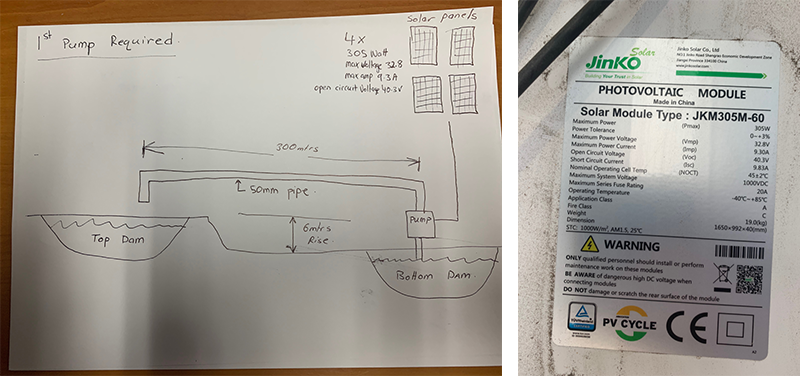 1st Pump Required.
solar panels
4x
305 Watt
max Voltage 32.8
max amp 9.3A
open circuit Voltage 40.3v
300mtrs
50mm pipe.
Pump
6mtrs
Rise
Top Dam
Bottom Dam
Solar
JinKO
Building Your Trust in Solar
Jinko Solar Co., Ltd
Jiangxi Province 334100 China
www.jinkosolar.com
PHOTOVOLTAIC MODULE
Made in China
Solar Module Type : JKM305M-60
Maximum Power (Pmax) 305W
Power Tolerance 0~+3%
Maximum Power Voltage (Vmp) 32.8V
Maximum Power Current (Imp) 9.30A
Open Circuit Voltage (Voc) 40.3V
Short Circuit Current (Isc) 9.83A
Nominal Operating Cell Temp (NOCT) 45±2℃
Maximum System Voltage 1000VDC
Maximum Series Fuse Rating 20A
Operating Temperature -40℃~+85℃
Application Class A
Fire Class C
Weight 19.0(kg)
Dimension 1650×992×40(mm)
STC: 1000W/m², AM1.5, 25℃
WARNING
ONLY qualified personnel should install or perform
maintenance work on these modules
BE AWARE of dangerous high DC voltage when
connecting modules
DO NOT damage or scratch the rear surface of the module
PV CYCLE
CE